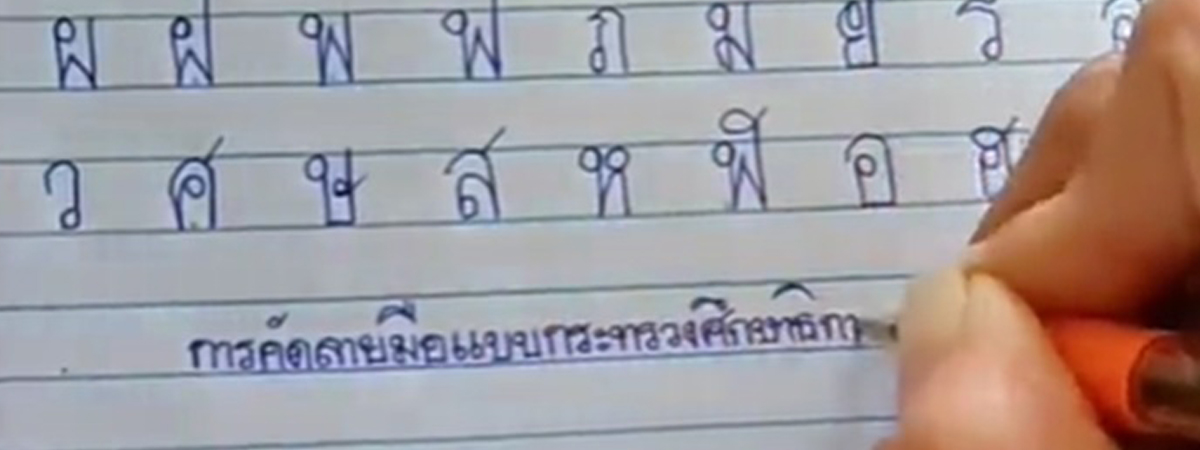 ผ ฝ พ ฟ ภ ม ย ร
ว ศ ษ ส ห ฬ อ ฮ
การคัดลายมือแบบกระทรวงศึกษาธิกา